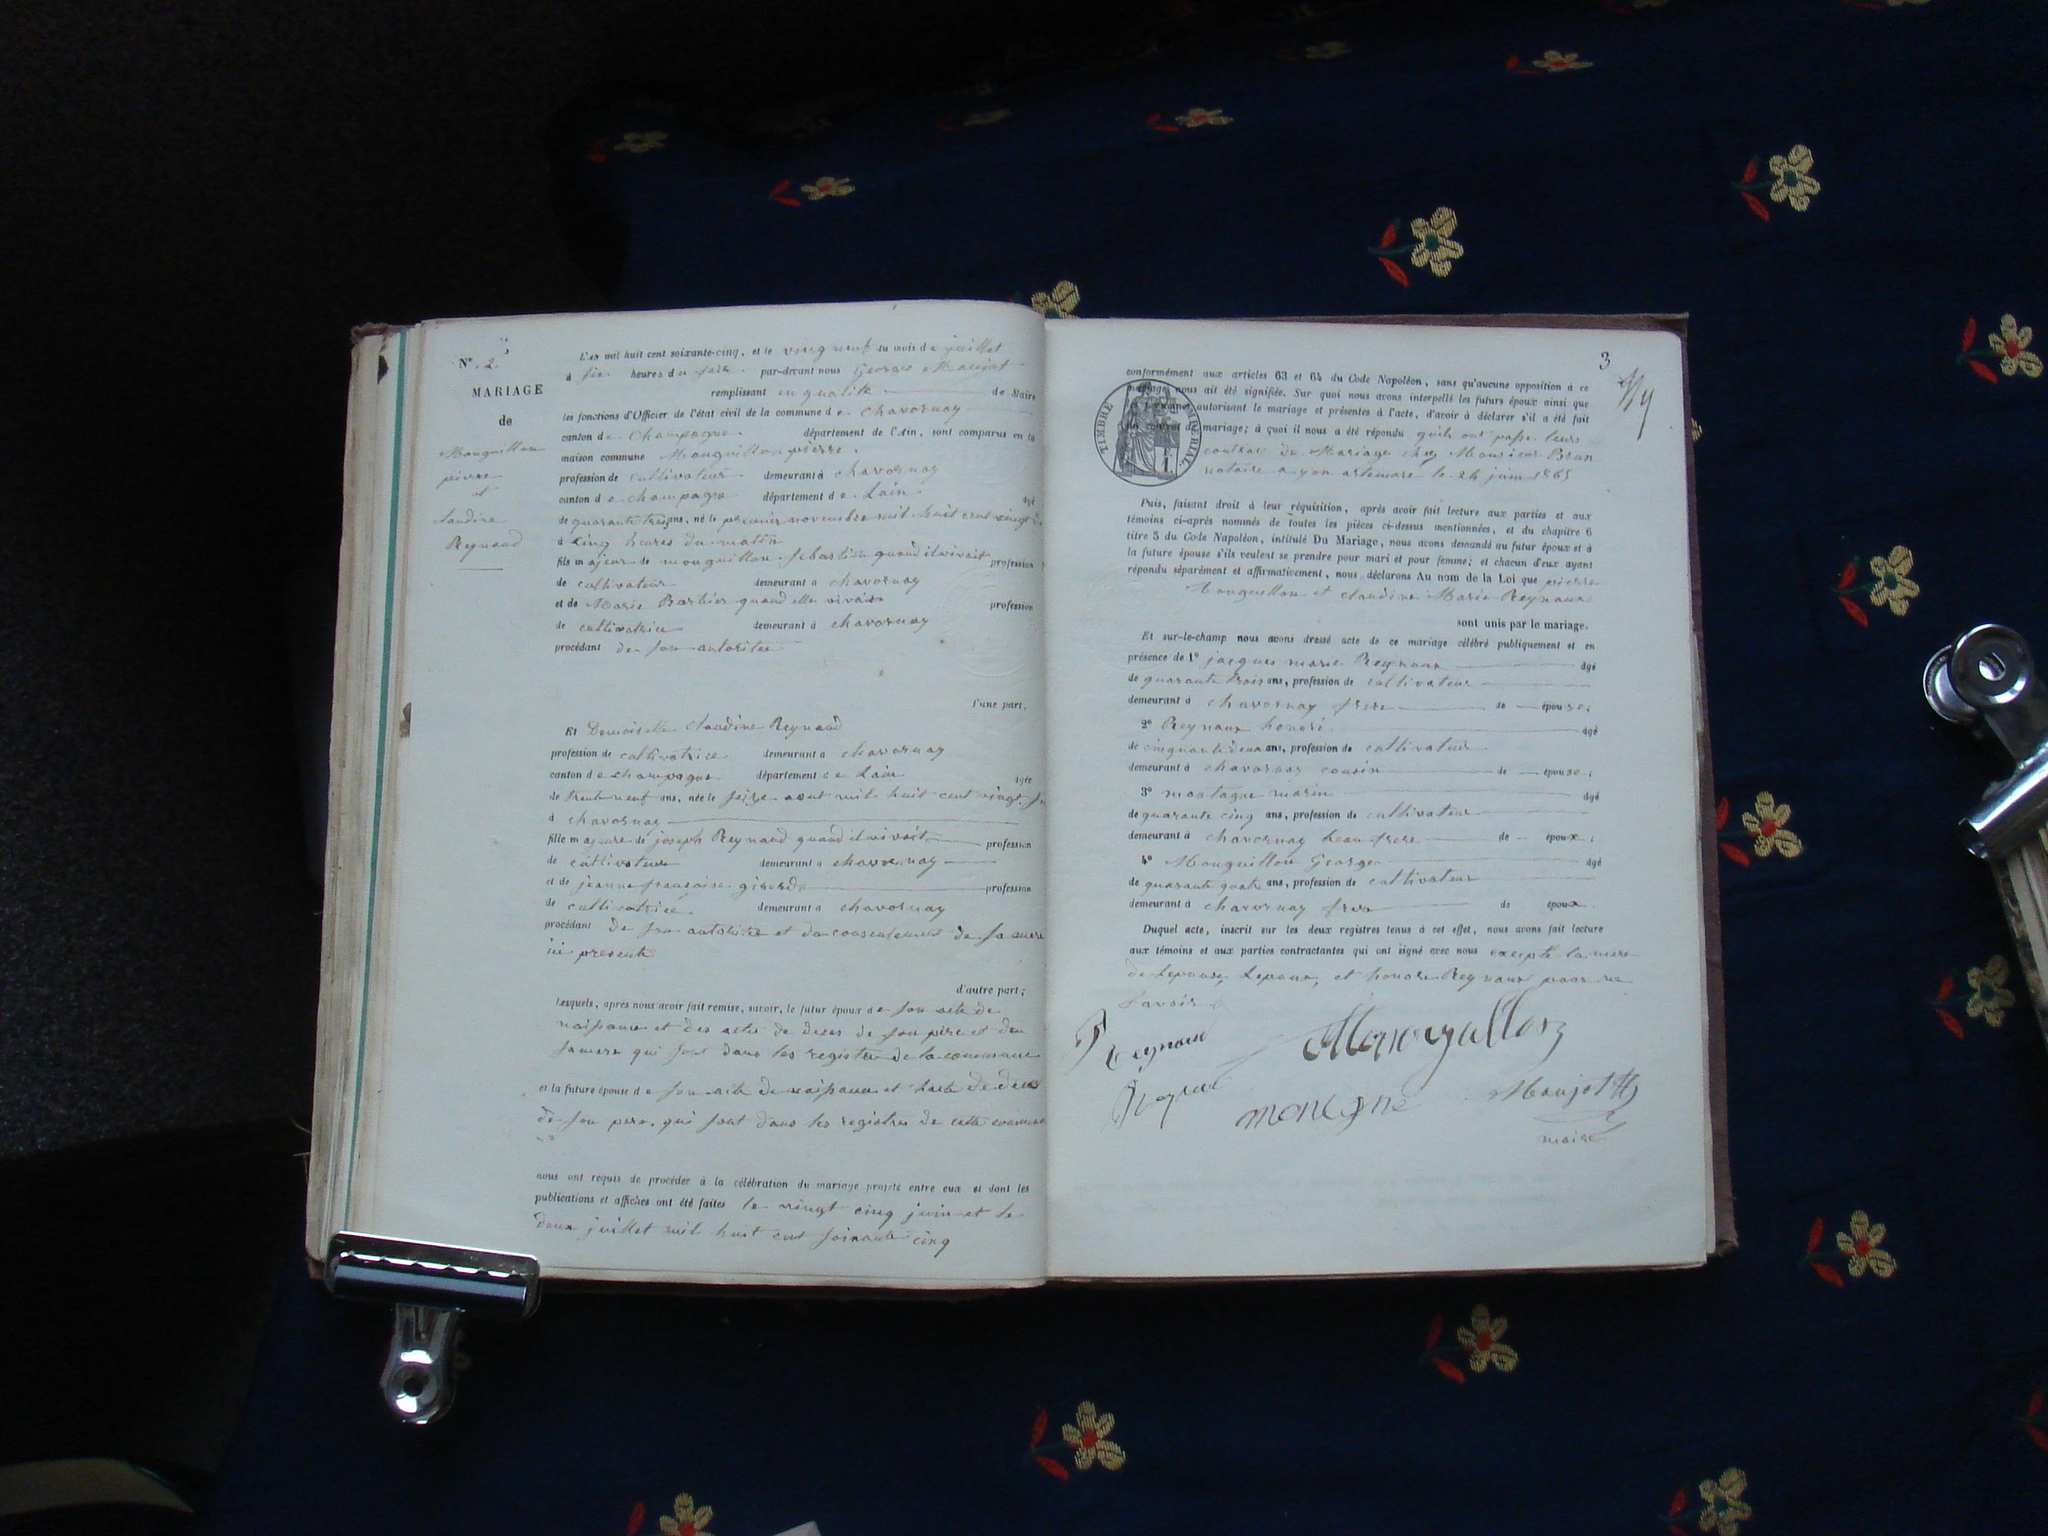 N° 2.
MARIAGE
de
Mouguillon
pierre
et
claudine
Reynaud
L'an mil huit cent soixante-cinq, et le vingt neuf du mois de juillet
à six heures du soir par-devant nous George Maujot
remplissant en qualité de Maire
les fonctions d'Officier de l'état civil de la commune de chavornay
canton de champagne département de l'Ain, sont comparus en la
maison commune Mouguillon pierre
profession de cultivateur demeurant à chavornay
canton de champagne département de Lain âgé
de quarante trois ans, né le premier novembre mil huit cent vingt
à cinq heures du matin
fils majeur de mouguillon sebastien quand il vivait profession
de cultivateur demeurant à chavornay
et de Marie Barbier quand elle vivait profession
de cultivatrice demeurant à chavornay
procédant de son autoritee
d'une part.
Et Demoiselle claudine Reynaud
profession de cultivatrice demeurant à chavornay
canton de champagne département de Lain âgée
de trente neuf ans, née le seize aout mil huit cent vingt
à chavornay
fille majeure de joseph Reynaud quand il vivait profession
de cultivateur demeurant à chavornay
et de jeanne françoise girerd profession
de cultivatrice demeurant à chavornay
procédant de son autorité et du consentement de sa mere
ici presente
d'autre part;
Lesquels, après nous avoir fait remise, savoir, le futur époux de son acte de
naissance et des actes de deces de son père et de
sa mere qui sont dans les registres de la commune
et la future épouse de son acte de naissance et lacte de deces
de son pere qui sont dans les registres de cette commune
nous ont requis de procéder à la célébration du mariage projeté entre eux et dont les
publications et affiches ont été faites le vingt cinq juin et le
deux juillet mil huit cent soixante cinq
3
conformément aux articles 63 et 64 du Code Napoléon, sans qu'aucune opposition à ce
mariage nous ait été signifiée. Sur quoi nous avons interpellé les futurs époux ainsi que
autorisant le mariage et présentes à l'acte, d'avoir à déclarer s'il a été fait
un contrat de mariage; à quoi il nous a été répondu quils ont passe leurs
contrat de Mariage chez Monsieur Brun
notaire a yon artemare le 24 juin 1865
TIMBRE IMPÉRIAL
Puis, faisant droit à leur réquisition, après avoir fait lecture aux parties et aux
témoins ci-après nommés de toutes les pièces ci-dessus mentionnées, et du chapitre 6
titre 5 du Code Napoléon, intitulé Du Mariage, nous avons demandé au futur époux et à
la future épouse s'ils veulent se prendre pour mari et pour femme; et chacun d'eux ayant
répondu séparément et affirmativement, nous déclarons Au nom de la Loi que pierre
Mouguillon et claudine Marie Reynaud
sont unis par le mariage.
Et sur-le-champ nous avons dressé acte de ce mariage célébré publiquement et en
présence de 1° jacques marie Reynaux âgé
de quarante trois ans, profession de cultivateur
demeurant à chavornay frere de épouse;
2° Reynaux honoré âgé
de cinquante deux ans, profession de cultivateur
demeurant à chavornay cousin de épouse;
3° montagne marin âgé
de quarante cinq ans, profession de cultivateur
demeurant à chavornay beau frere de époux;
4° Mouguillon George âgé
de quarante quatre ans, profession de cultivateur
demeurant à chavornay frere de époux.
Duquel acte, inscrit sur les deux registres tenus à cet effet, nous avons fait lecture
aux témoins et aux parties contractantes qui ont signé avec nous excepte la mere
de Lepouse, Lepoux, et honore Reynaux pour ne
savoir
Reynaud
Mouguillon
montagne
Maujot
maire